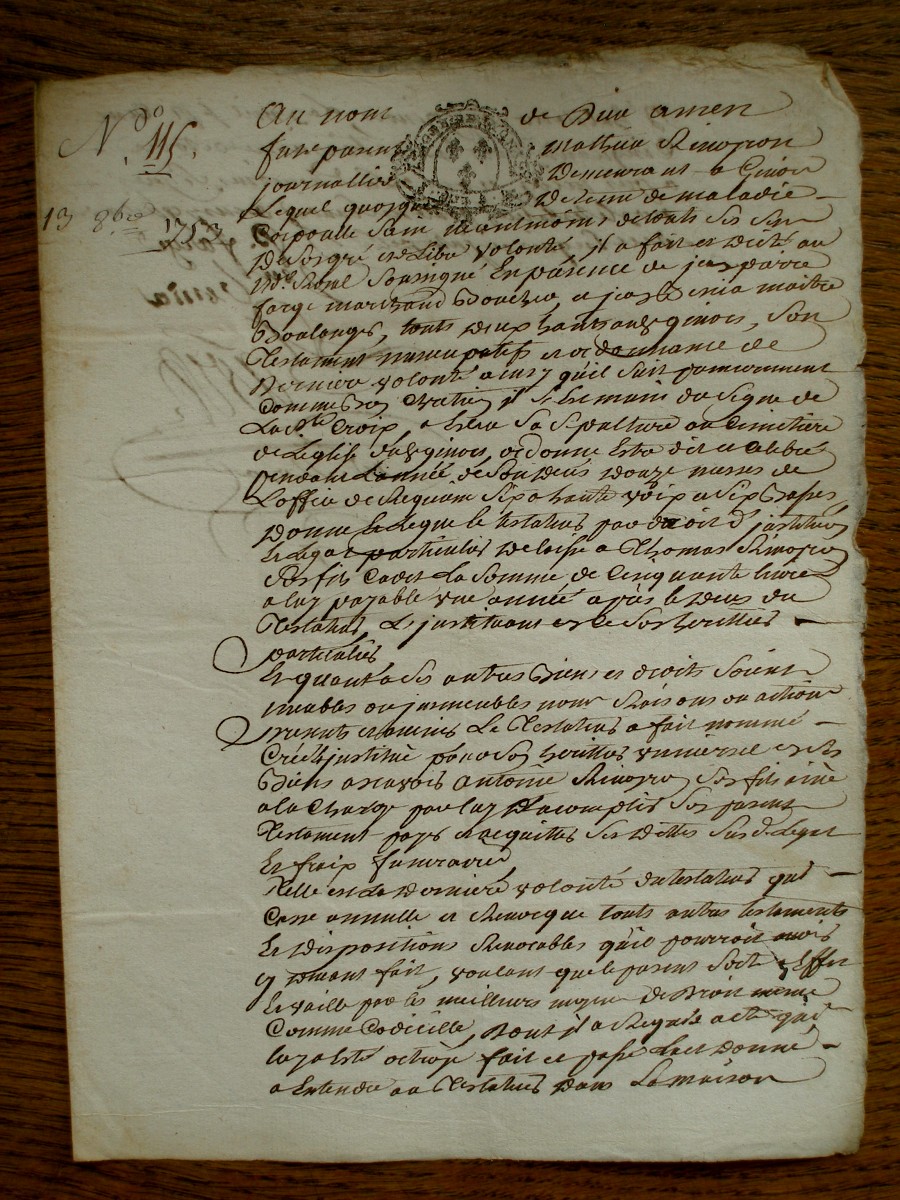 N.do 115.
13 8bre 1753
Au nom de Dieu amen
fut present Mathieu
journallier Demeurant a
Lequel quoyque Detenu de maladie
Corporelle Sain neantmoins de touts ses Sens
De Son gré et Libre volonté jl a fait et Dicté au
No.re Royal Soussigné En presence de jean pierre
farge marchand Boucher, et jean maitre
Boulanger, touts deux habitans, Son
Testament nuncupatif et ordonnance de
Derniere volonté ainsy qu'il Suit premierement
Comme Bon Chretien jl S'est muni du Signe de
La Ste Croix, a Eleu Sa Sepulture au Cimetiere
de L'eglise ordonne Estre dit et Celebré
pendant L'année de Son Deces Douze messes de
L'office de Requiem Six a haute voix et Six Basses,
Donne & Legue le testateur par droit d'jnstitution
et Legat particulier a Thomas
Son fils Cadet La Somme de Cinquante livres
a luy payable une année après le Deces du
Testateur, L'jnstituant en ce Son heritier
particulier
Et quant a Ses autres Biens et droits Soient
meubles ou jmmeubles noms Raisons ou actions
presents et avenir Le Testateur a fait nommé
Créé & jnstitué pour Son heritier universel
Biens ascavoir Antoine Son fils ainé
a la Charge par luy D'acomplir Son present
Testament payer et acquitter Ses Dettes Susd. Legat
Et fraix funeraires
Telle est La Derniere volonté du testateur qui
Casse annulle et Revocque touts autres testaments
Et dispositions Revocables qu'il pourroit avoir
cy devant fait, voulant que le present Sorte Effet
Et vaille par les meilleurs moyens de Droit meme
Comme Codicille, Dont jl a Requis acte que
luy ay octroyé fait Leu Donné
a Entendre au Testateur Dans La maison